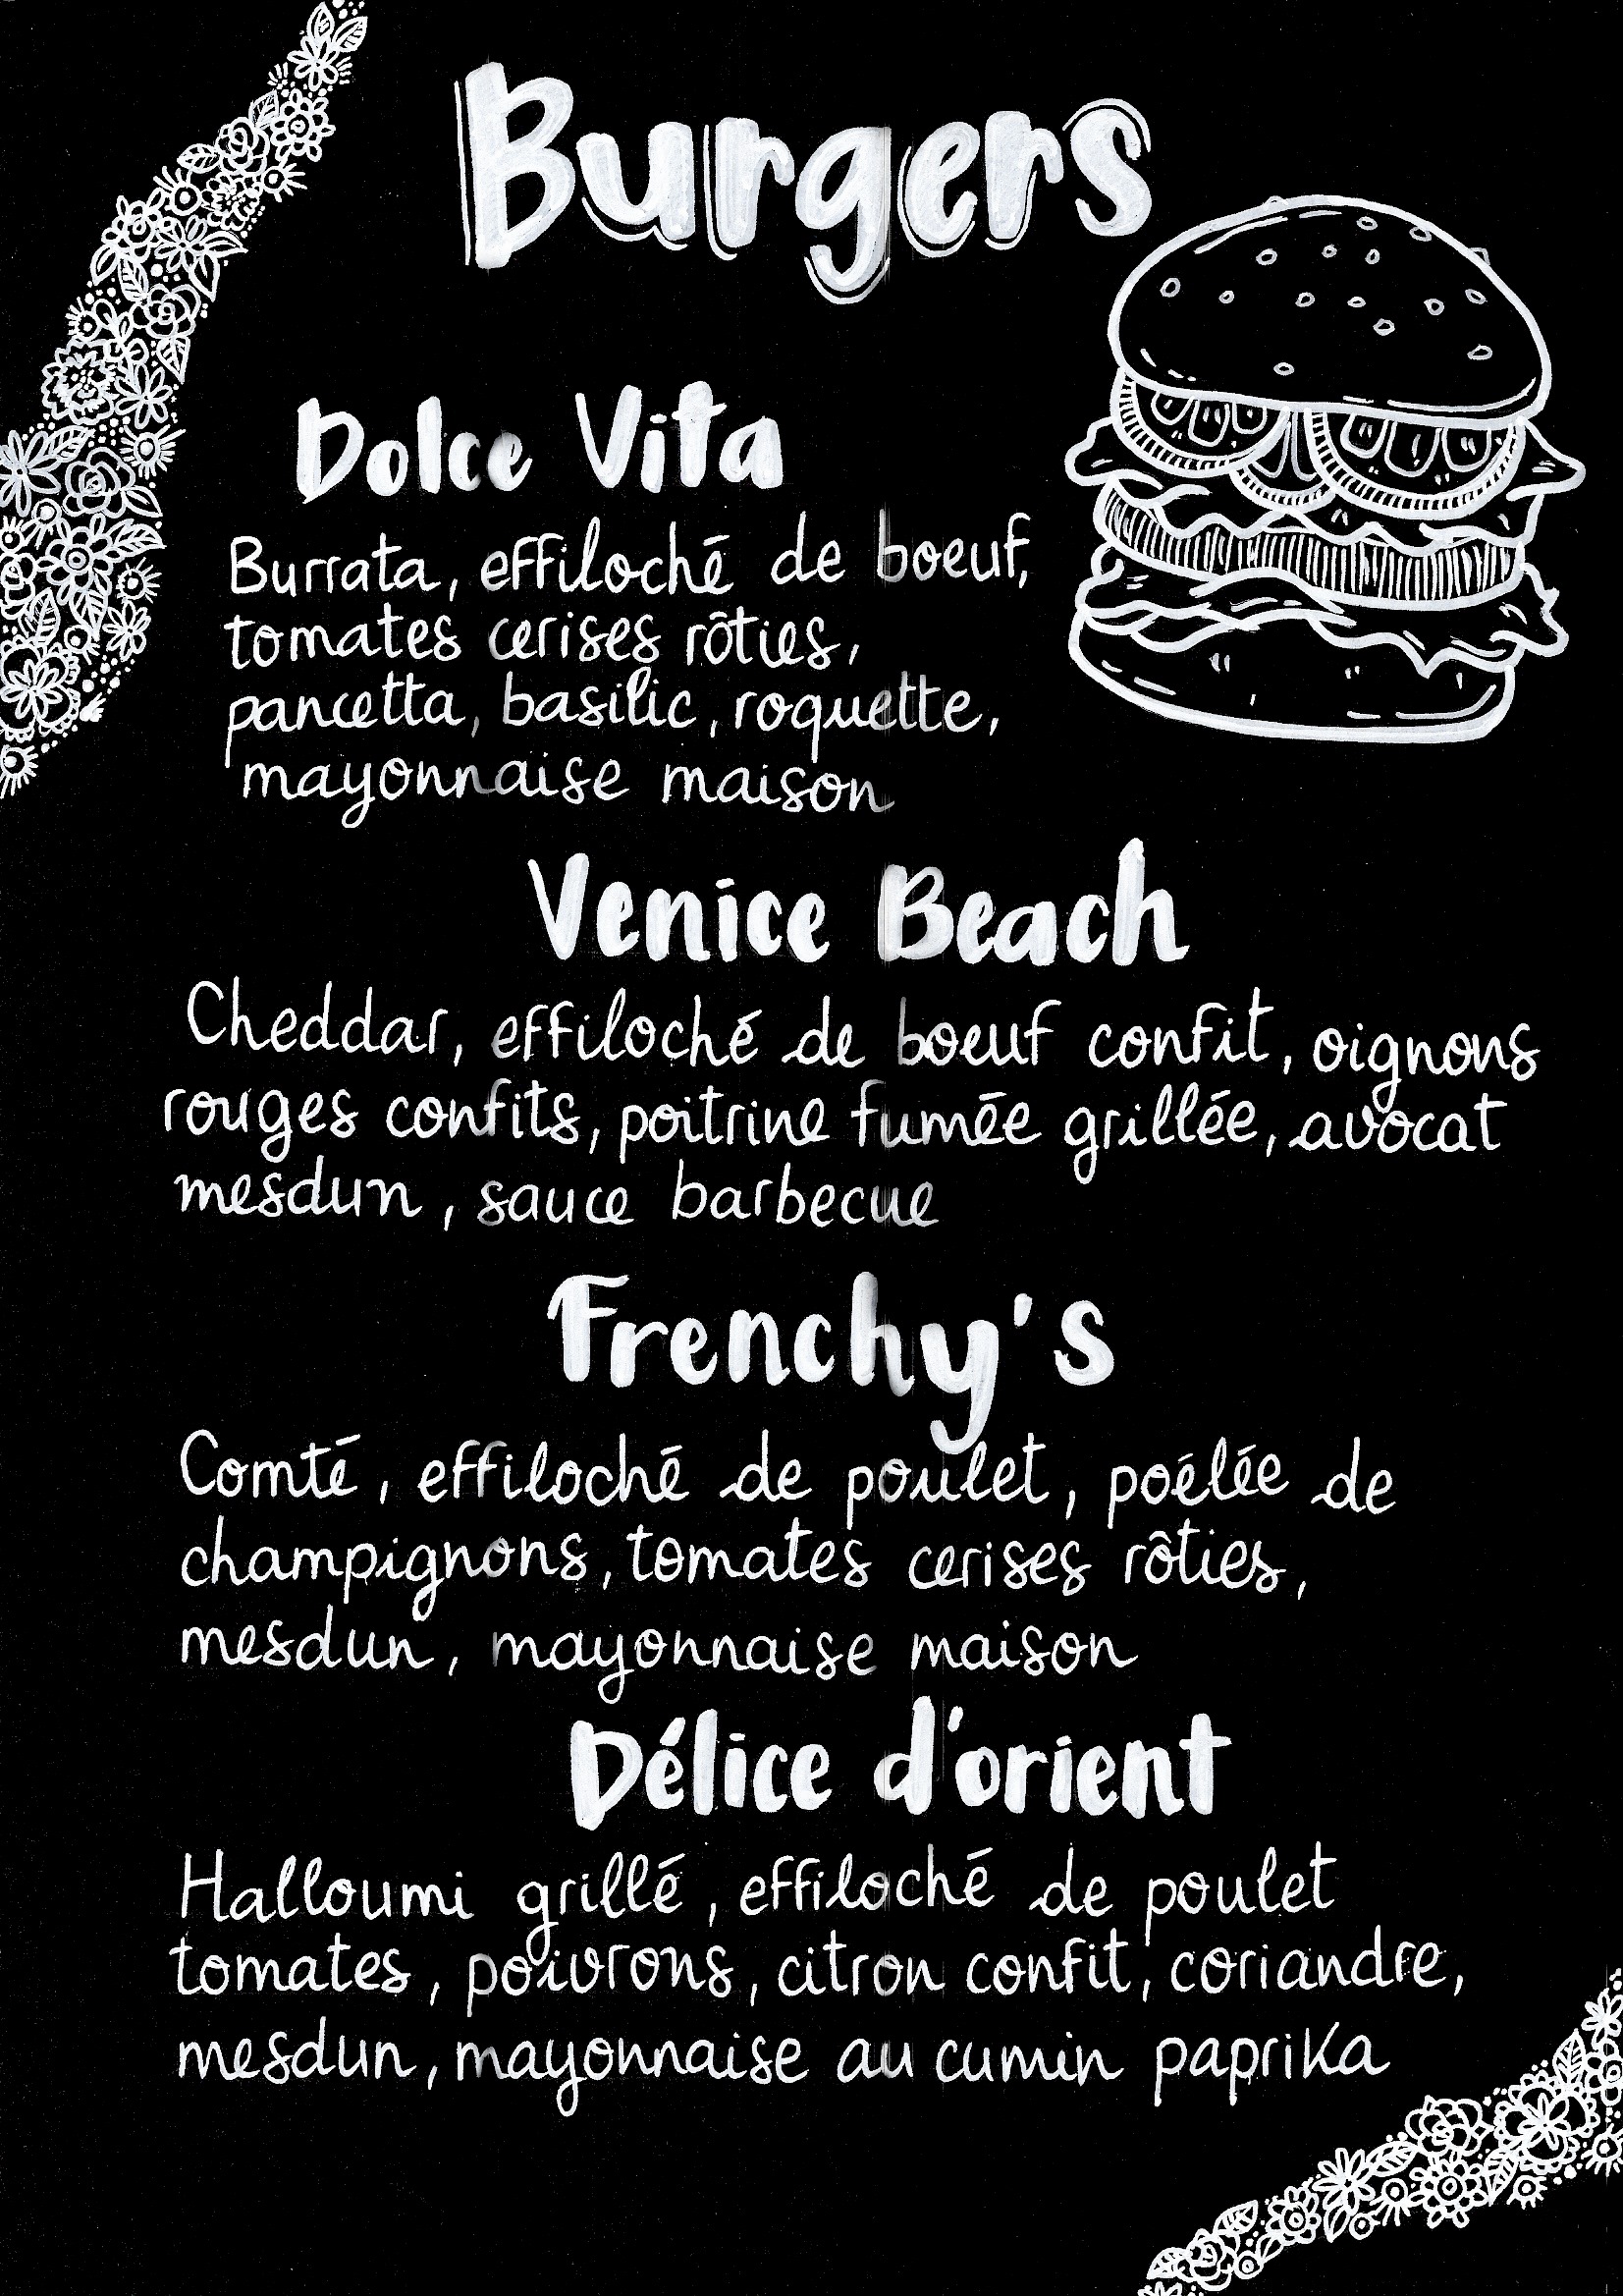 Burgers
Dolce Vita
Burrata, effiloché de boeuf,
tomates cerises rôties,
pancetta, basilic, roquette,
mayonnaise maison
Venice Beach
Cheddar, effiloché de boeuf confit, oignons
rouges confits, poitrine fumée grillée, avocat
mesdun, sauce barbecue
Frenchy's
Comté, effiloché de poulet, poélée de
champignons, tomates cerises rôties,
mesdun, mayonnaise maison
Délice d'orient
Halloumi grillé, effiloché de poulet
tomates, poivrons, citron confit, coriandre,
mesdun, mayonnaise au cumin paprika